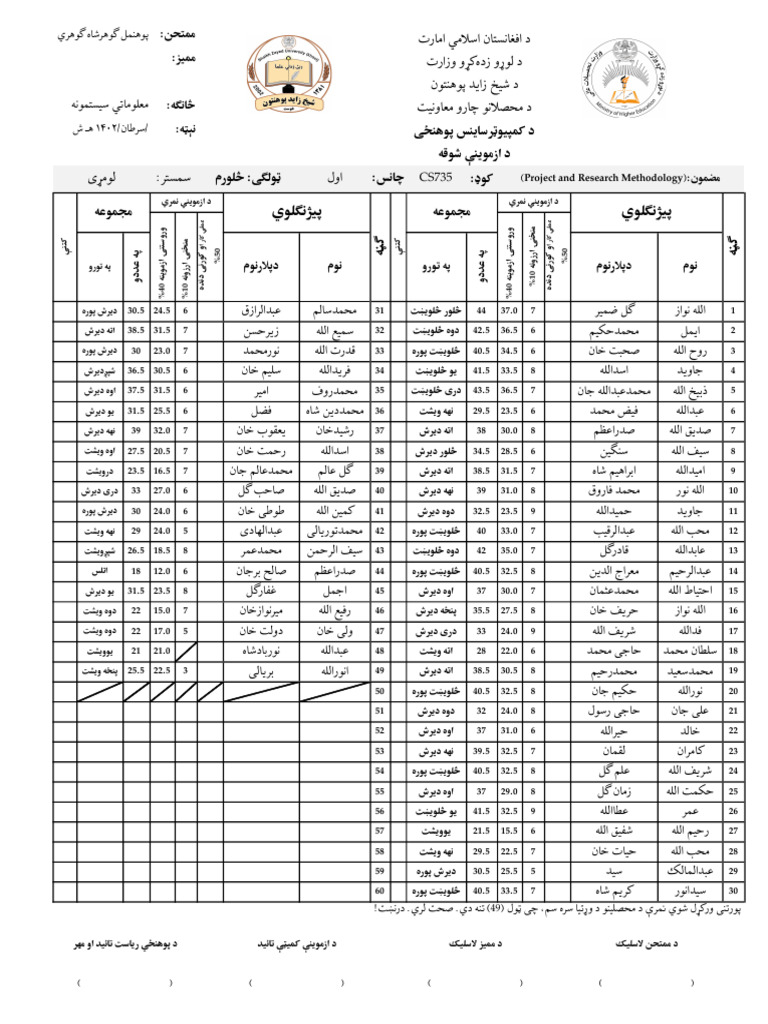 د افغانستان اسلامي امارت
د لوړو زده‌کړو وزارت
د شیخ زاید پوهنتون
د محصلانو چارو معاونیت
د کمپیوټرساینس پوهنځی
د ازموینې شوقه
ممتحن: پوهنمل گوهرشاه گوهري
ممیز:
څانګه: معلوماتي سیستمونه
نېټه: /سرطان/۱۴۰۲ هـ ش
Ministry of Higher Education
Shaikh Zayed University (Khost)
شیخ زاید پوهنتون
2002
۱۳۸۱
مضمون:(Project and Research Methodology) کوډ: CS735 چانس: اول ټولگی: څلورم سمستر: لومړی
ګڼه پیژنګلوي د ازموینې نمرې مجموعه کتنې ګڼه پیژنګلوي د ازموینې نمرې مجموعه کتنې
نوم دپلارنوم عملي کار او کورنۍ دنده 50% منځنۍ ارزونه 10% وروستنۍ ازموینه 40% په عددو په تورو نوم دپلارنوم عملي کار او کورنۍ دنده 50% منځنۍ ارزونه 10% وروستنۍ ازموینه 40% په عددو په تورو
1 الله نواز گل ضمیر 7 37.0 44 څلور څلویښت 31 محمدسالم عبدالرازق 6 24.5 30.5 دیرش پوره
2 ایمل محمدحکیم 6 36.5 42.5 دوه څلویښت 32 سمیع الله زیرحسن 7 31.5 38.5 اته دیرش
3 روح الله صحبت خان 6 34.5 40.5 څلویښت پوره 33 قدرت الله نورمحمد 7 23.0 30 دیرش پوره
4 جاوید اسدالله 8 33.5 41.5 یو څلویښت 34 فریدالله سلیم خان 6 30.5 36.5 شپږدیرش
5 ذبیح الله محمدعبدالله جان 7 36.5 43.5 دری څلویښت 35 محمدروف امیر 6 31.5 37.5 اوه دیرش
6 عبدالله فیض محمد 6 23.5 29.5 نهه ویشت 36 محمددین شاه فضل 6 25.5 31.5 یو دیرش
7 صدیق الله صدراعظم 8 30.0 38 اته دیرش 37 رشیدخان یعقوب خان 7 32.0 39 نهه دیرش
8 سیف الله سنگین 6 28.5 34.5 څلور دیرش 38 اسدالله رحمت خان 7 20.5 27.5 اوه ویشت
9 امیدالله ابراهیم شاه 7 31.5 38.5 اته دیرش 39 گل عالم محمدعالم جان 7 16.5 23.5 درویشت
10 الله نور محمد فاروق 8 31.0 39 نهه دیرش 40 صدیق الله صاحب گل 6 27.0 33 دری دیرش
11 جاوید حمیدالله 9 23.5 32.5 دوه دیرش 41 کمین الله طوطی خان 6 24.0 30 دیرش پوره
12 محب الله عبدالرقیب 7 33.0 40 څلویښت پوره 42 محمدثوریالی عبدالهادی 5 24.0 29 نهه ویشت
13 عابدالله قادرگل 7 35.0 42 دوه څلویښت 43 سیف الرحمن محمدعمر 8 18.5 26.5 شپږویشت
14 عبدالرحیم معراج الدین 8 32.5 40.5 څلویښت پوره 44 صدراعظم صالح برجان 6 12.0 18 اتلس
15 احتیاط الله محمدعثمان 7 30.0 37 اوه دیرش 45 اجمل غفارگل 8 23.5 31.5 یو دیرش
16 الله نواز حریف خان 8 27.5 35.5 پنځه دیرش 46 رفیع الله میرنوازخان 7 15.0 22 دوه ویشت
17 فدالله شریف الله 9 24.0 33 دری دیرش 47 ولی خان دولت خان 5 17.0 22 دوه ویشت
18 سلطان محمد حاجی محمد 6 22.0 28 اته ویشت 48 عبدالله نوربادشاه 21.0 21 یوویشت
19 محمدسعید محمدرحیم 8 30.5 38.5 اته دیرش 49 انورالله بریالی 3 22.5 25.5 پنځه ویشت
20 نورالله حکیم جان 8 32.5 40.5 څلویښت پوره 50
21 علی جان حاجی رسول 8 24.0 32 دوه دیرش 51
22 خالد حیرالله 6 31.0 37 اوه دیرش 52
23 کامران لقمان 7 32.5 39.5 نهه دیرش 53
24 شریف الله علم گل 8 32.5 40.5 څلویښت پوره 54
25 حکمت الله زمان گل 8 29.0 37 اوه دیرش 55
26 عمر عطاالله 9 32.5 41.5 یو څلویښت 56
27 رحیم الله شفیق الله 6 15.5 21.5 یوویشت 57
28 محب الله حیات خان 7 22.5 29.5 نهه ویشت 58
29 عبدالمالک سید 5 25.5 30.5 دیرش پوره 59
30 سیدانور کریم شاه 7 33.5 40.5 څلویښت پوره 60
پورتنی ورکړل شوي نمرې د محصلینو د وړتیا سره سم، چی ټول (49) تنه دي. صحت لري. درنښت!
د ممتحن لاسلیک د ممیز لاسلیک د ازموینې کمیټې تائید د پوهنځي ریاست تائید او مهر
( ) ( ) ( ) ( )